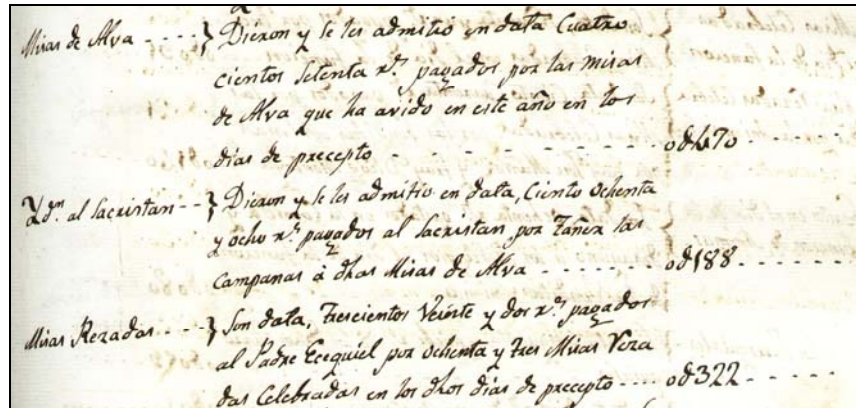 Misas de Alva - - - - } Dieron y se les admitio en data Cuatro
cientos setenta rs. pagados por las misas
de Alva que ha avido en este año en los
dias de precepto - - - - - - - - - - o∂470 - - - - -
Ydn. al Sacristan - - } Dieron y se les admitio en data, Ciento ochenta
y ocho rs. pagados al Sacristan por tañer las
Campanas á dhas Misas de Alva - - - - - - - o∂188 - - - - - -
Misas Rezadas - - - } Son data, trescientos Veinte y dos rs. pagados
al Padre Ecequiel por ochenta y tres Misas Reza
das Celebradas en los dhos dias de precepto - - - - o∂322 - - - - -